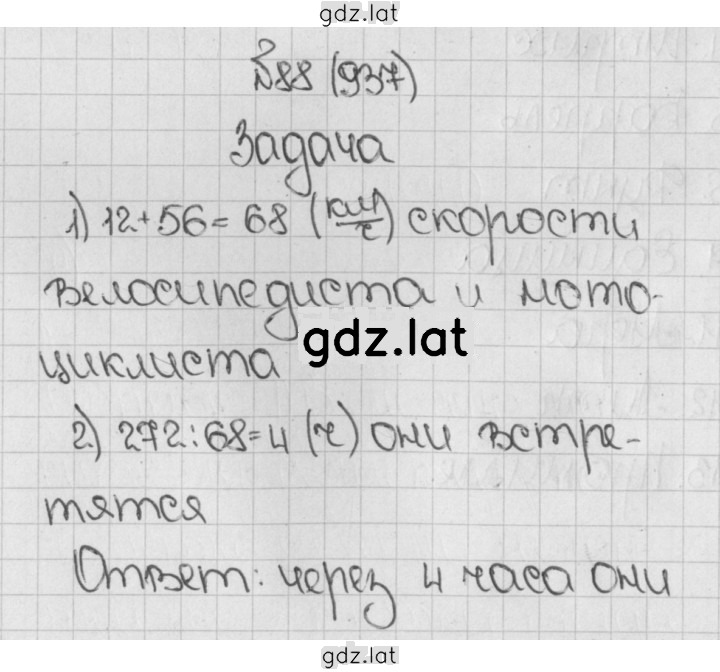 gdz.lat
№88 (937)
Задача
1) 12+56=68 (км/ч) скорости
велосипедиста и мото-
циклиста
gdz.lat
2) 272:68=4 (ч) они встре-
тятся
Ответ: через 4 часа они
gdz.lat